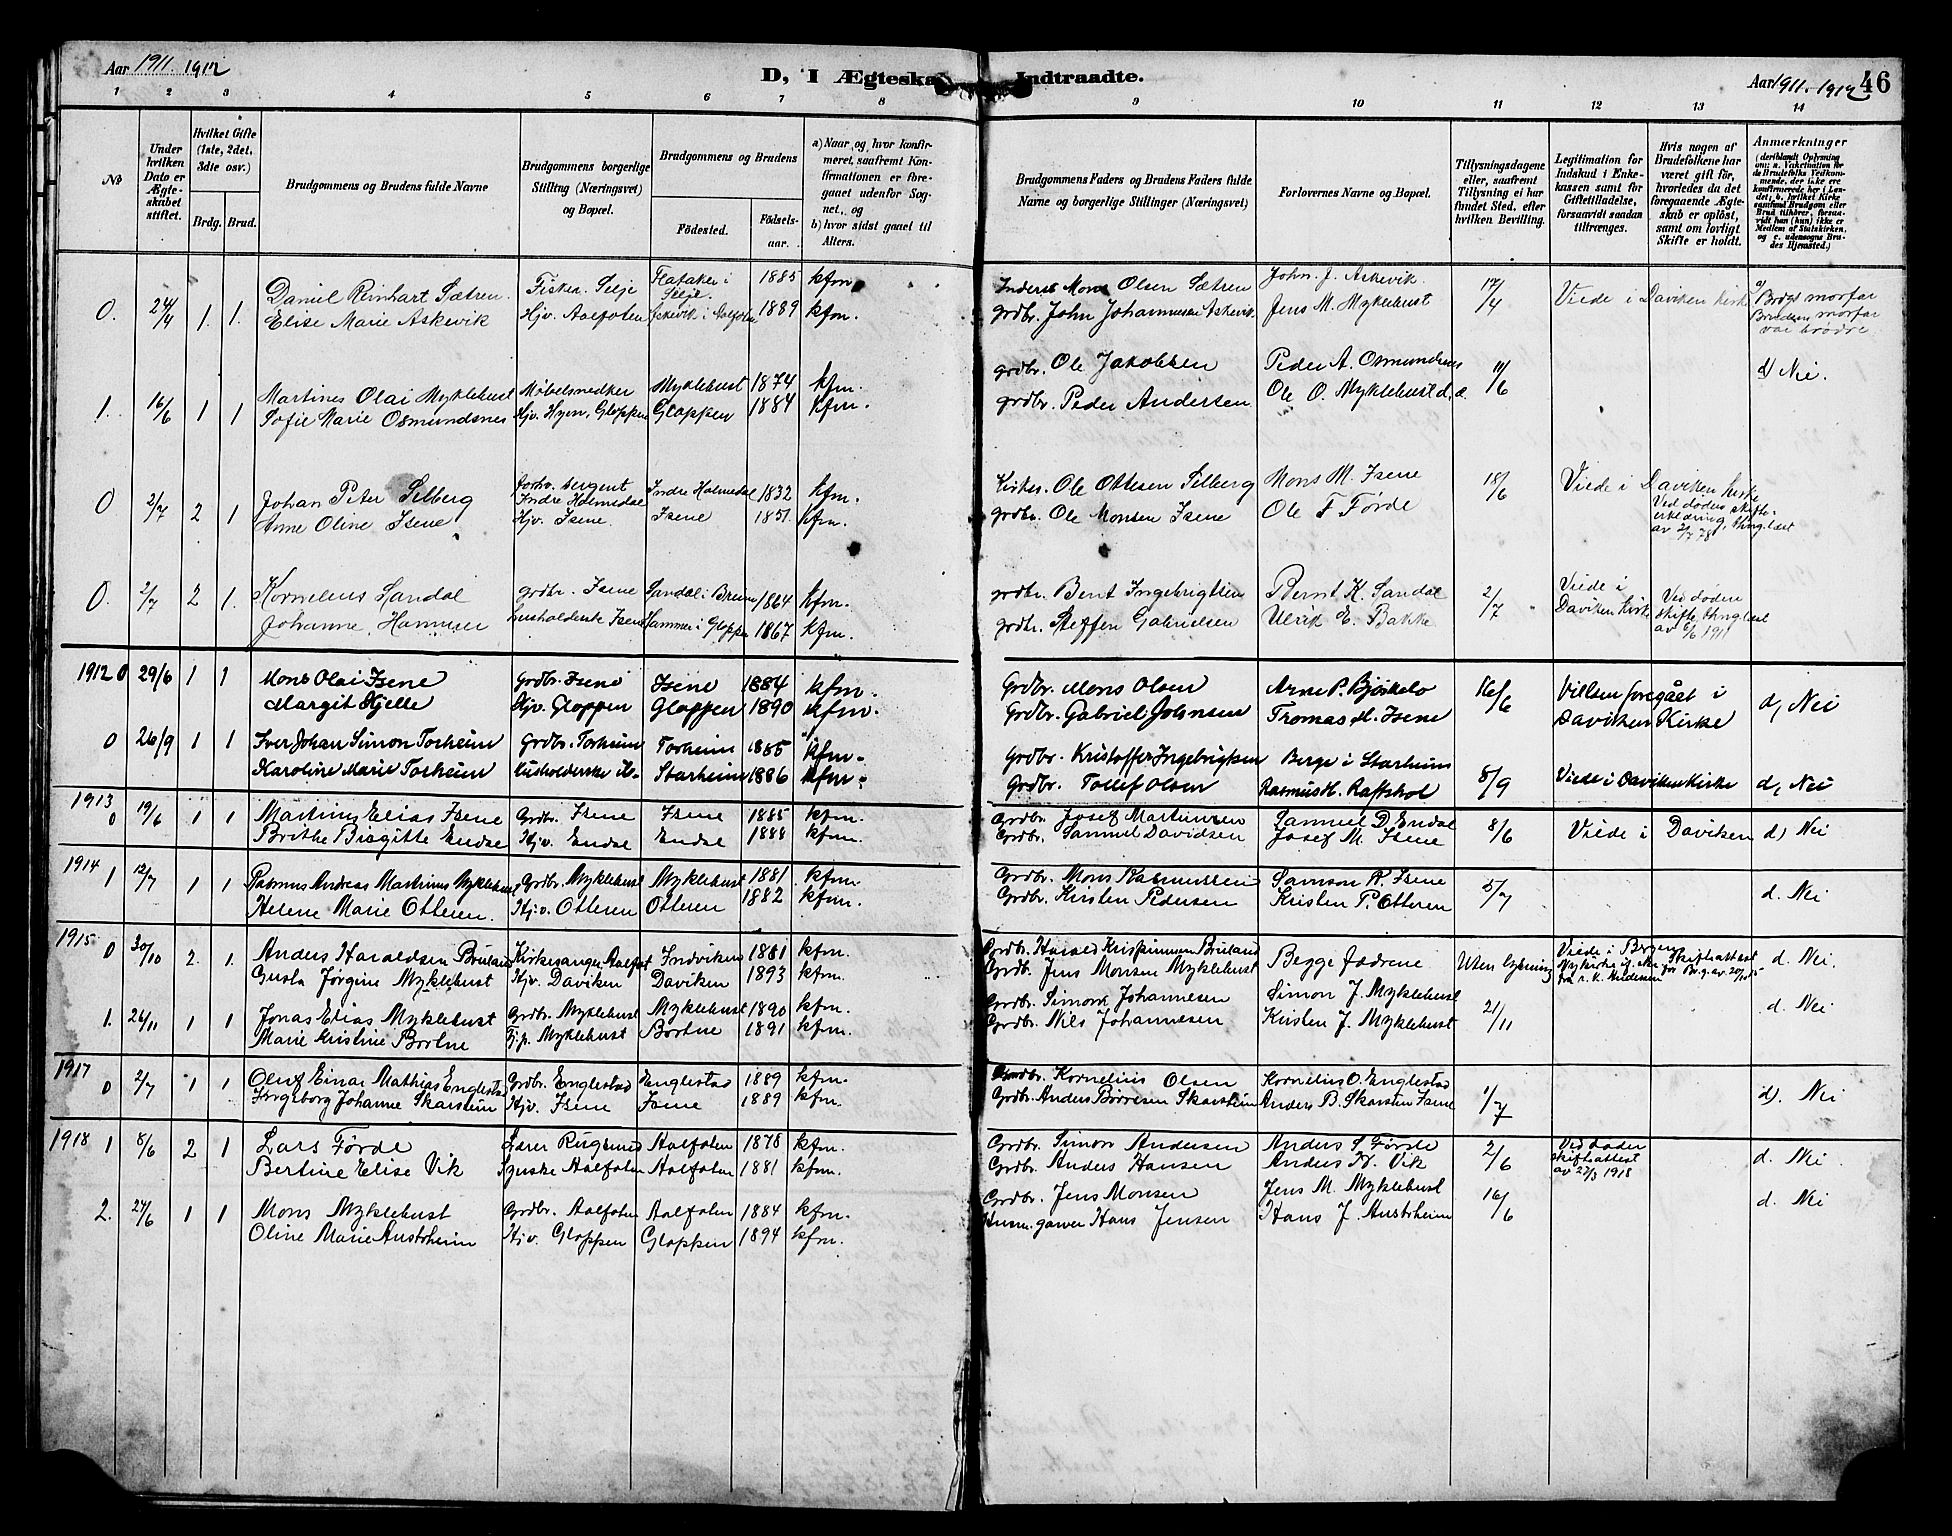 Aar 1911. 1912
D, I Ægteska Indtraadte.
Aar 1911. 1912 46
1 2 3 4 5 6 7 8 9 10 11 12 13 14
No
Under hvilken Dato er Ægteskabet stiftet.
Hvilket Gifte (1ste, 2det, 3die osv.)
Brdg. Brud.
Brudgommens og Brudens fulde Navne
Brudgommens borgerlige Stilling (Næringsvei) og Bopæl.
Brudgommens og Brudens
Fødested. Fødselsaar.
a) Naar og hvor konfirmeret, saafremt Konfirmationen er foregaaet udenfor Sognet, og
b) hvor sidst gaaet til Alters.
Brudgommens Faders og Brudens Faders fulde Navne og borgerlige Stillinger (Næringsvei)
Forlovernes Navne og Bopæl.
Tillysningsdagene eller, saafremt Tillysning ei har fundet Sted, efter hvilken Bevilling.
Legitimation for Indskud i Enkekassen samt for Giftetilladelse, forsaavidt saadan tiltrænges.
Hvis nogen af Brudefolkene har været gift før, hvorledes da det foregaaende Ægteskab er opløst, samt om lovligt Skifte er holdt.
Anmærkninger
(deriblandt Oplysning om: a. Vakcination for de Brudefolks Vedkommende, der ikke ere konfirmerede her i Landet; b. hvilket Kirkesamfund Brudgom eller Brud tilhører, forsaavidt han (hun) ikke er Medlem af Statskirken, og c. udensogns Brudes Hjemsted.)
0. 24/4 1. 1. Daniel Reinhart Sætren. Fisker. Selje Flataker i Selje. 1885 kfm. Mons Olsen Sætren John. J. Askevik 17/4 Viede i Daviken Kirke Brdgs morfar
Elise Marie Askevik Hjv. Aalfoten Askevik i Aalfoten 1889 kfm. grdbr. John Johannesen Askevik. Jens M. Myklebust Brudens morfar var brødre.
1. 16/6 1 1 Martines Olai Myklebust Møbelsnedker Myklebust 1874 kfm. grdbr. Ole Jakobsen Peder A. Osmundsnes 11/6 d) Nei.
Sofie Marie Osmundsnes Hjv. Hyen, Gloppen Gloppen 1884 kfm. grdbr. Peder Andersen Ole O. Myklebust d.æ.
0 2/7 2 1 Johan Peter Selberg forhv. sergent Indre Holmedal Indre Holmedal 1832 kfm. Kirkes. Ole Ottesen Selberg Mons M. Isene 18/6 Viede i Daviken Kirke
Anne Oline Isene Hjv. Isene. Isene 1851. kfm. grdbr. Ole Monsen Isene Ole F Førde Ved døden skifteerklæring, thinglæst av 2/7 78
0. 2/7 2 1. Kornelius Sandal grdbr. Isene Sandal i Breim 1864 kfm. grdbr. Bent Ingebrigtsen Bernt K. Sandal 2/7 Viede i Daviken Kirke Ved døden
Johanne Hammer husholderske Isene Hammer i Gloppen 1867 kfm. grdbr. Steffen Gabrielsen Ulrik E. Bakke skifte thinglæst av 6/6 1911
1912 0 29/6 1 1 Mons Olai Isene Grdbr. Isene Isene 1884 kfm. Grdbr. Mons Olsen Arne P. Bjørkelo 16/6 Vielsen foregået i d, Nei
Margit Hjelle Hjv. Gloppen Gloppen 1890 kfm. Grdbr. Gabriel Johnsen Tromas M. Isene Daviken Kirke
0 26/9 1 1 Iver Johan Simon Torheim Grdbr. Torheim Torheim 1885 kfm. Grdbr. Kristoffer Ingebrigtsen Berge i Starheim 8/9 Viede i Daviken Kirke d, Nei
Karoline Marie Torheim Husholderske Starheim 1886 kfm. Grdbr. Tollef Olsen Rasmus H. Raftshol
1913 0 19/6 1 1 Martinus Elias Isene Grdbr. Isene Isene 1885 kfm. Grdbr. Josef Martinsen Samuel D. Endal 8/6 Viede i Daviken d) Nei
Brithe Birgitte Endal Hjv. Endal Endal 1888 kfm. Grdbr. Samuel Davidsen Josef M. Isene
1914 1 12/7 1 1 Rasmus Andreas Martinus Myklebust Grdbr. Myklebust Myklebust 1881. kfm. Grdbr. Mons Rasmussen Samson R. Isene 5/7 d. Nei
Helene Marie Otteren. Hjv. Otteren Otteren 1882 kfm. Grdbr. Kirsten Pedersen Kristen P. Otteren
1915 0 30/10 2. 1. Anders Haraldsen Bruland Kirkesanger Aalfot Indviken 1881 kfm. Grdbr. Harald Krispinusen Bruland Begge fædrene Uten lysning Viede i Bergen Skifteattest d. Nei.
Gusta Jørgine Myklebust Hjv. Daviken Daviken 1893 kfm. Grdb. Jens Monsen Myklebust
1. 26/11 1 1 Jonas Elias Myklebust Grdbr. Myklebust Myklebust 1890 kfm. Grdbr. Simon Johannesen Simon J. Myklebust 21/11 d. Nei
Marie Kristine Bortne Tjp. Myklebust Bortne 1891 kfm. Grdbr. Nils Johannesen Kirsten J. Myklebust
1917 0 2/7 1 1 Oluf Einar Mathias Englestad Grdbr. Englestad Englestad 1889 kfm. Grdbr. Kornelius Olsen Kornelius O. Englestad 1/7 d). Nei
Ingeborg Johanne Skarstein Hjv. Isene Isene 1889 kfm. Grdbr. Anders Børresen Skarstein Anders B. Skarsten Isene
1918 1 8/6 2 1 Lars Førde Lærer Rugsund Aalfoten 1878 kfm. Grdbr. Simon Andersen Anders S. Førde 2/6 Ved døden d. Nei
Bertine Elise Vik Syerske Aalfoten Aalfoten 1881 kfm. Grdbr. Anders Hansen Anders H. Vik skifteattest av 27/3 1918
2. 27/6 1 1 Mons Myklebust Grdbr. Aalfoten Aalfoten 1884 kfm. Grdbr. Jens Monsen Jens M. Myklebust 16/6 d. Nei
Oline Marie Austrheim Hjv. Gloppen Gloppen 1894 kfm. Hans Jensen Hans J. Austrheim